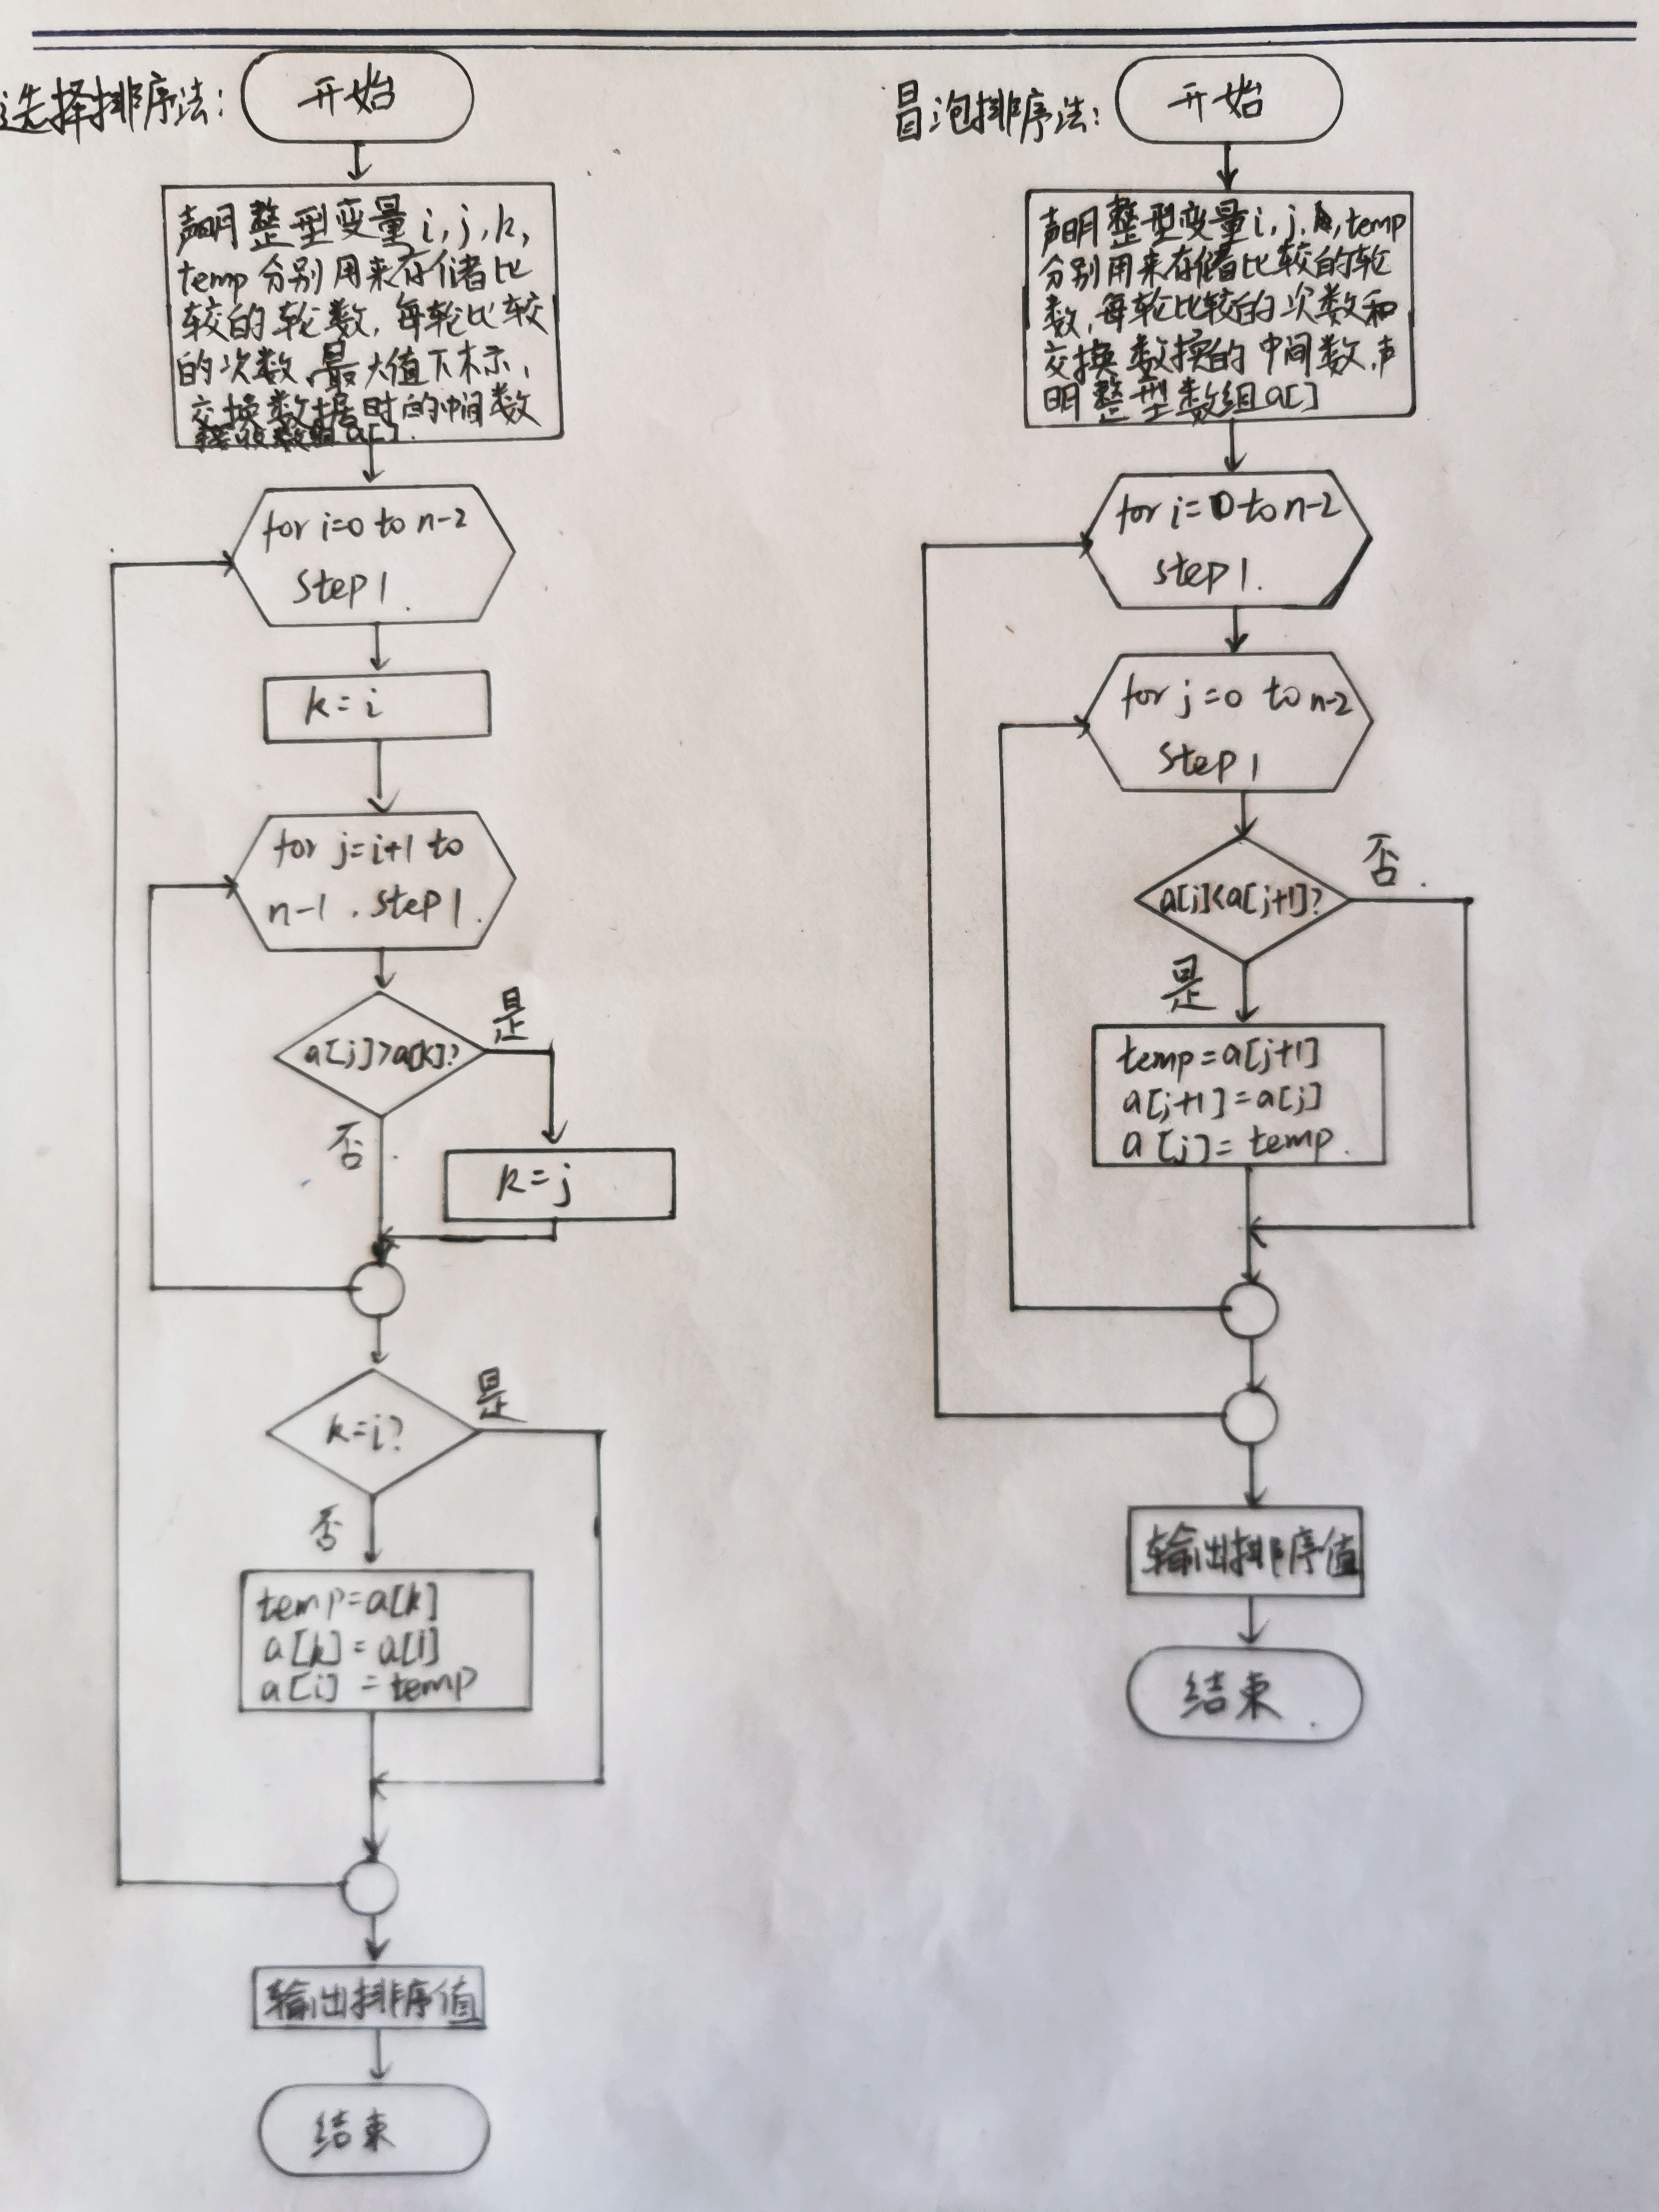 选择排序法:
开始
声明整型变量i,j,k,
temp分别用来存储比
较的轮数,每轮比较
的次数,最大值下标,
交换数据时的中间数
接收数组a[].
for i=0 to n-2
step1.
k=i
for j=i+1 to
n-1,step1.
a[j]>a[k]?
是
否
k=j
k=i?
是
否
temp=a[k]
a[k]=a[i]
a[i]=temp
输出排序值
结束
冒泡排序法:
开始
声明整型变量i,j,temp
分别用来存储比较的轮
数,每轮比较的次数和
交换数换的中间数,声
明整型数组a[]
for i=0 to n-2
step1.
for j=0 to n-2
step1
a[j]<a[j+1]?
否.
是
temp=a[j+1]
a[j+1]=a[j]
a[j]=temp.
输出排序值
结束.